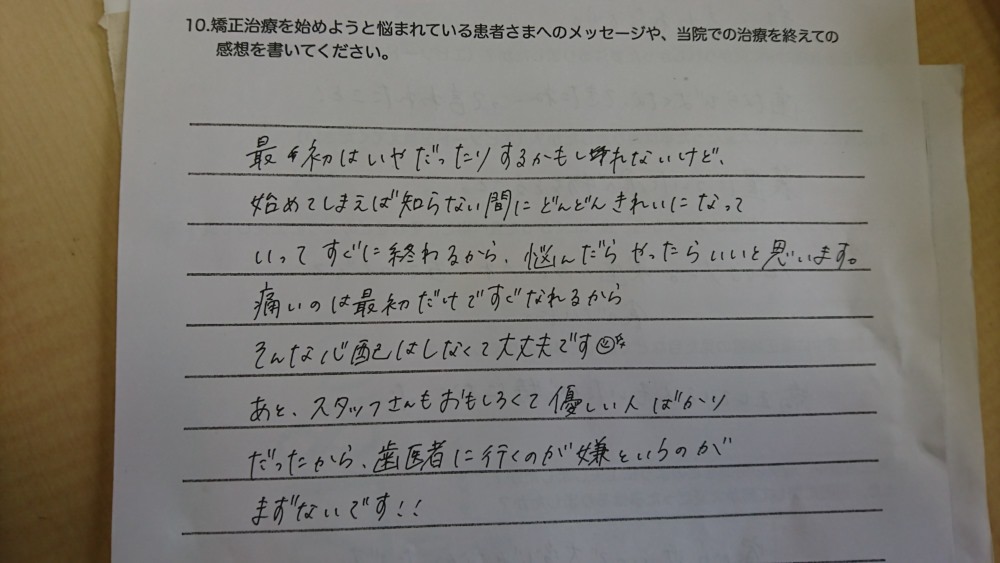 10.矯正治療を始めようと悩まれている患者さまへのメッセージや、当院での治療を終えての
感想を書いてください。
最初はいやだったりするかもしれないけど、
始めてしまえば知らない間にどんどんきれいになって
いってすぐに終わるから、悩んだらやったらいいと思います。
痛いのは最初だけですぐなれるから
そんな心配はしなくて大丈夫です
あと、スタッフさんもおもしろくて優しい人ばかり
だったから、歯医者に行くのが嫌というのが
まずないです!!